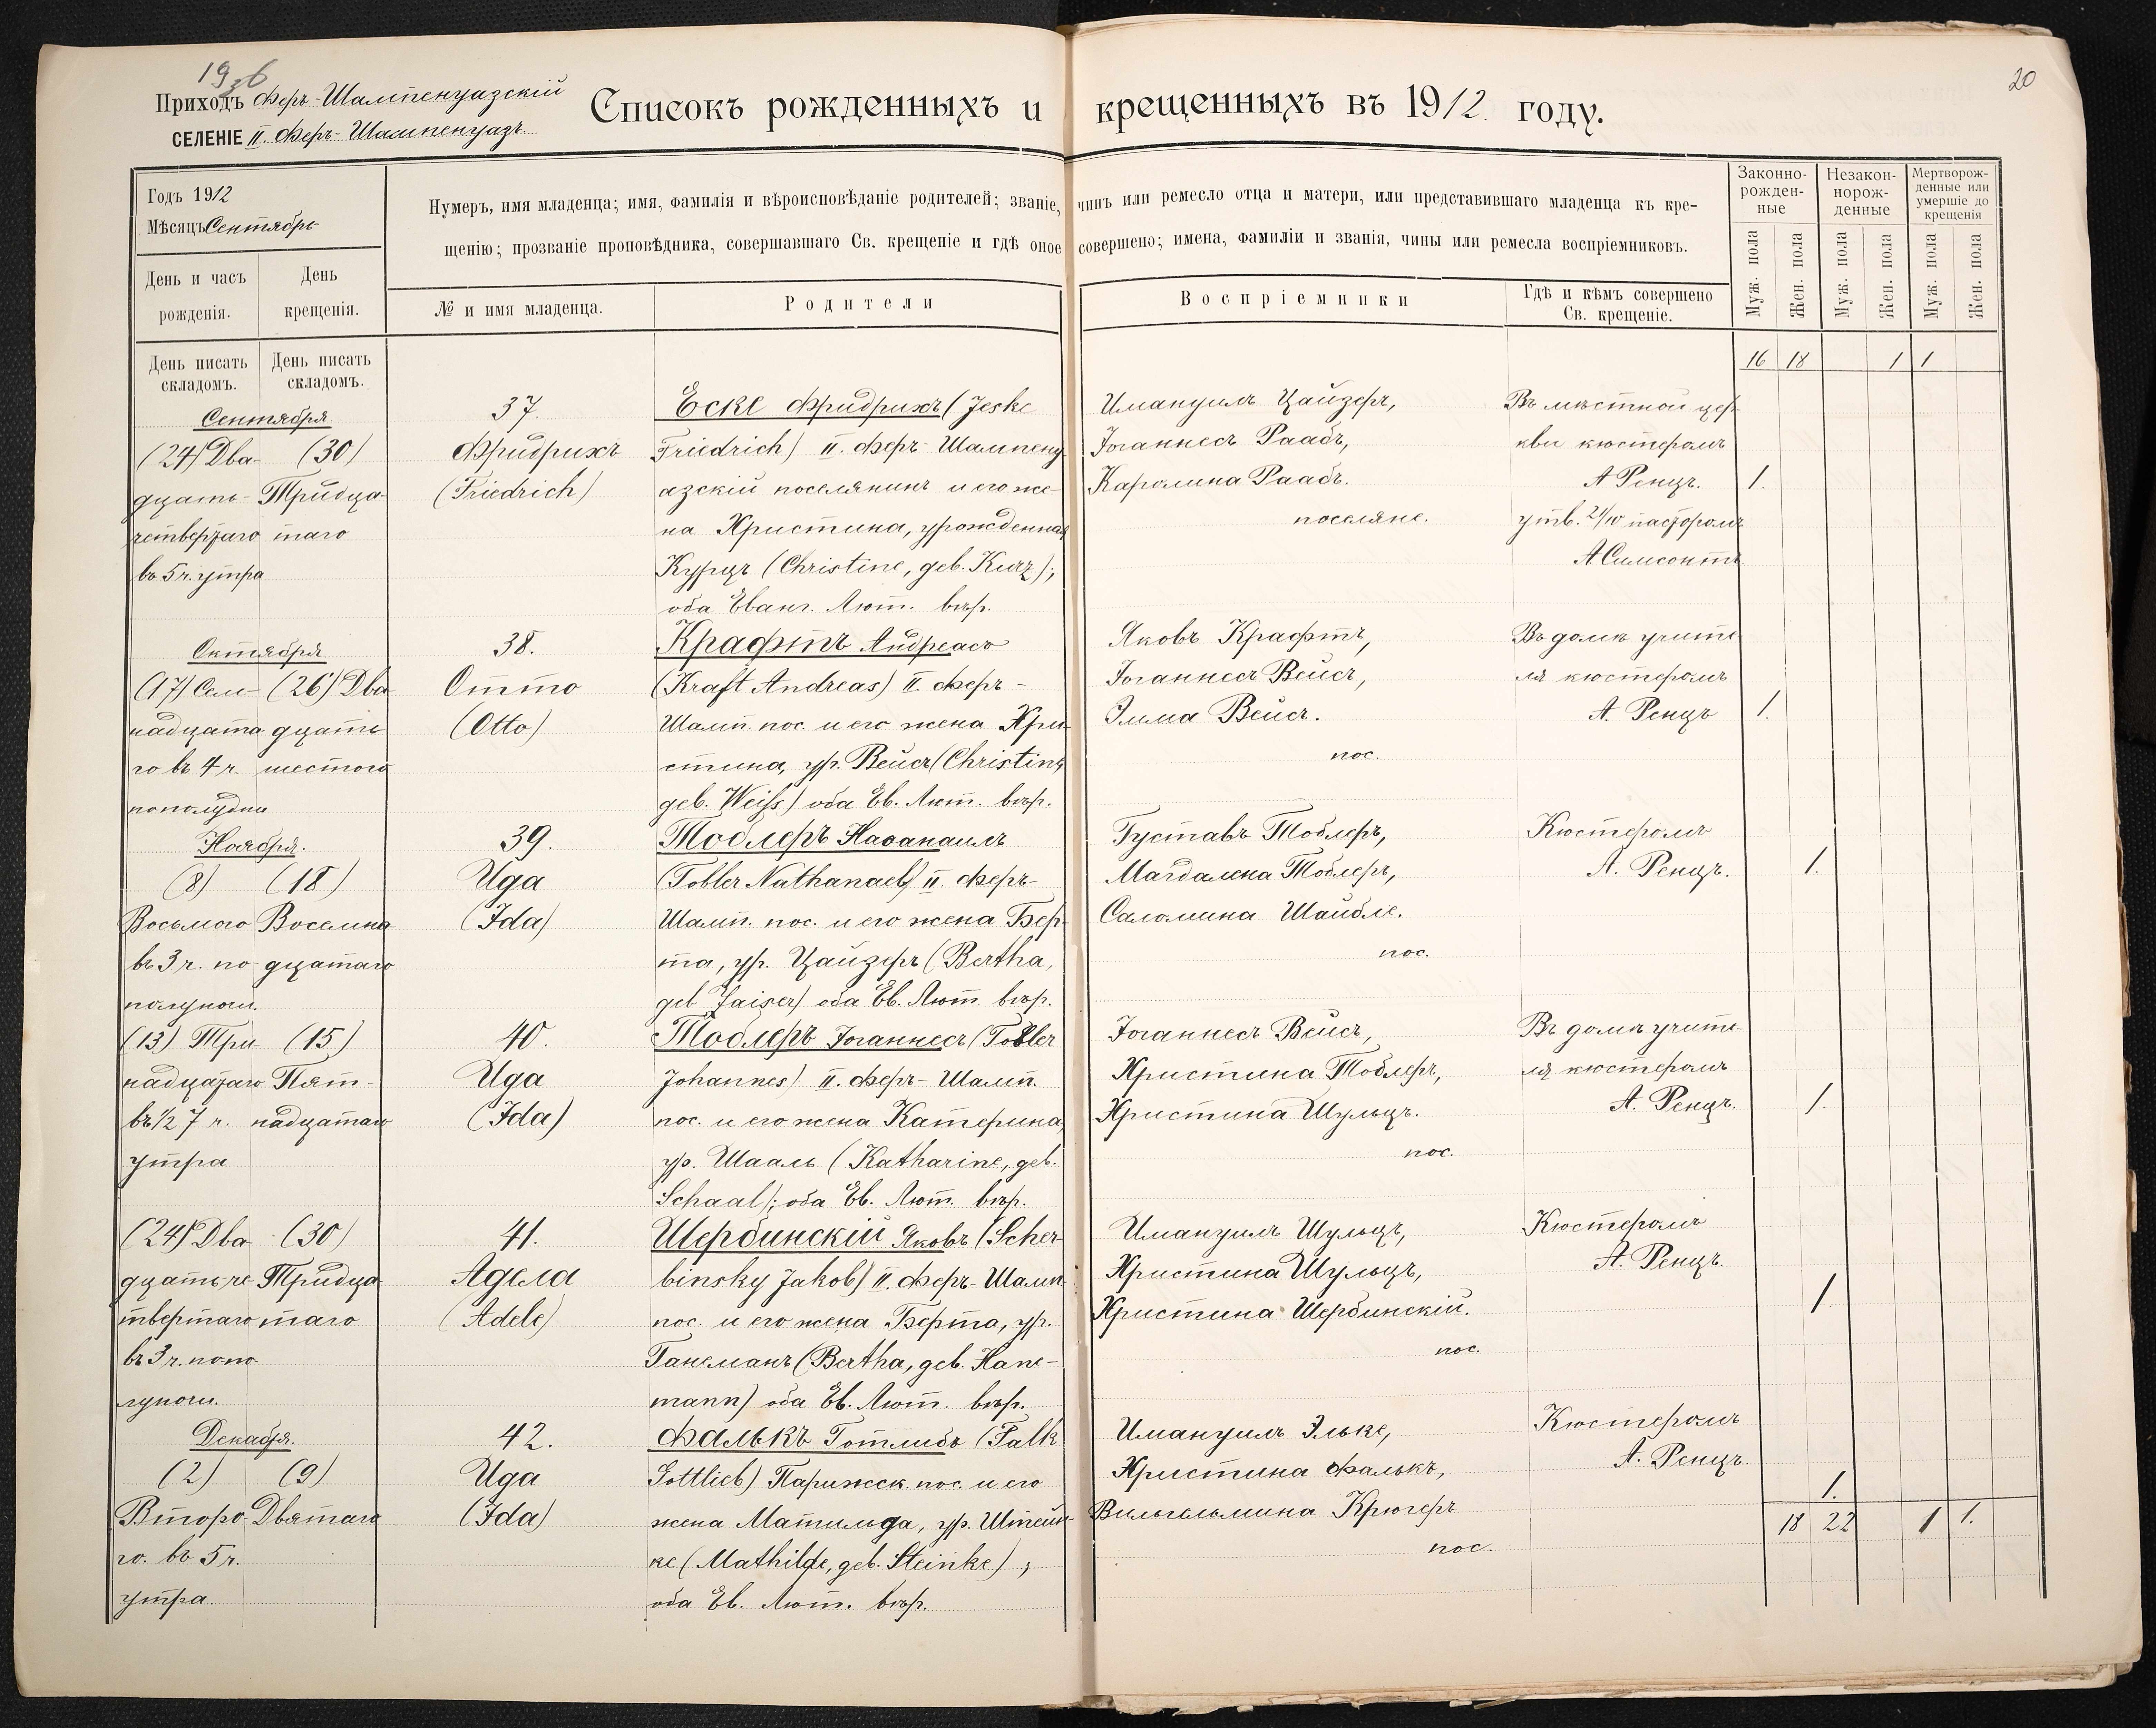 19 зб
20
Приходъ Феръ-Шампенуазскій
СЕЛЕНІЕ II. Феръ-Шампенуазъ.
Списокъ рожденныхъ и крещенныхъ въ 1912 году.
Годъ 1912
Мѣсяцъ Сентябрь
День и часъ рожденія.
День крещенія.
Нумеръ, имя младенца; имя, фамилія и вѣроисповѣданіе родителей; званіе, чинъ или ремесло отца и матери, или представившаго младенца къ кре-
щенію; прозваніе проповѣдника, совершавшаго Св. крещеніе и гдѣ оное совершено; имена, фамиліи и званія, чины или ремесла воспріемниковъ.
№ и имя младенца.
Родители
Воспріемники
Гдѣ и кѣмъ совершено
Св. крещеніе.
Законно-
рожден-
ные
Незакон-
норож-
денные
Мертворож-
денные или
умершіе до
крещенія
Муж. пола
Жен. пола
Муж. пола
Жен. пола
Муж. пола
Жен. пола
День писать
складомъ.
День писать
складомъ.
16 18 1 1
Сентября
(24) Два-
дцать-
четвертаго
въ 5 ч. утра
(30)
Тридца-
таго
37
Фридрихъ
(Friedrich)
Еске Фридрихъ (Jeske
Friedrich) II. Феръ-Шампену-
азскій поселянинъ и его же-
на Христина, урожденная
Курцъ (Christine, geb. Kurz);
оба Еванг. Лют. вѣр.
Имануилъ Цайзеръ,
Іоганнесъ Раабъ,
Каролина Раабъ.
поселяне.
Въ мѣстной цер-
кви кюстеромъ
А Ренцъ.
утв. 21/10 пасторомъ
А Симсонтъ
1.
Октября
(17) Сем-
надцата-
го въ 4 ч.
пополудни
(26) Два-
дцать
шестого
38.
Отто
(Otto)
Крафтъ Андреасъ
(Kraft Andreas) II. Феръ-
Шамп. пос. и его жена Хри-
стина, ур. Вейсъ (Christine,
geb. Weiss) оба Ев. Лют. вѣр.
Яковъ Крафтъ,
Іоганнесъ Вейсъ,
Эмма Вейсъ.
пос.
Въ домѣ учите-
ля кюстеромъ
А. Ренцъ
1.
Ноября.
(8)
Восьмого
въ 3 ч. по
полуночи.
(18)
Восемна-
дцатаго
39.
Ида
(Ida)
Тоблеръ Наѳанаилъ
(Tobler Nathanael) II. Феръ-
Шамп. пос. и его жена Бер-
та, ур. Цайзеръ (Bertha,
geb Zaiser) оба Ев. Лют. вѣр.
Густавъ Тоблеръ,
Магдалена Тоблеръ,
Саломина Шайбле.
пос.
Кюстеромъ
А. Ренцъ.
1.
(13) Три-
надцатаго
въ 1/2 7 ч.
утра
(15)
Пят-
надцатаго
40.
Ида
(Ida)
Тоблеръ Іоганнесъ (Tobler
Johannes) II. Феръ-Шамп.
пос. и его жена Катерина,
ур. Шааль (Katharine, geb.
Schaal); оба Ев. Лют. вѣр.
Іоганнесъ Вейсъ,
Христина Тоблеръ,
Христина Шульцъ.
пос.
Въ домѣ учите-
ля кюстеромъ
А. Ренцъ.
1.
(24) Два-
дцать че-
твертаго
въ 3 ч. попо-
луночи.
(30)
Тридца-
таго
41.
Адела
(Adele)
Щербинскій Яковъ (Scher-
binsky Jakob) II. Феръ-Шамп.
пос. и его жена Берта, ур.
Ганеманъ (Bertha, geb. Hane-
mann) оба Ев. Лют. вѣр.
Имануилъ Шульцъ,
Христина Шульцъ,
Христина Щербинскій.
пос.
Кюстеромъ
А. Ренцъ.
1
Декабря.
(2)
Второ-
го въ 5 ч.
утра.
(9)
Двятаго
42.
Ида
(Ida)
Фалькъ Готлибъ (Falk
Gottlieb) Парижск. пос. и его
жена Матильда, ур. Штейн-
ке (Mathilde, geb. Steinke);
оба Ев. Лют. вѣр.
Имануилъ Эльке,
Христина Фалькъ,
Вильгельмина Крюгеръ
пос.
Кюстеромъ
А. Ренцъ.
1.
18 22 1 1.